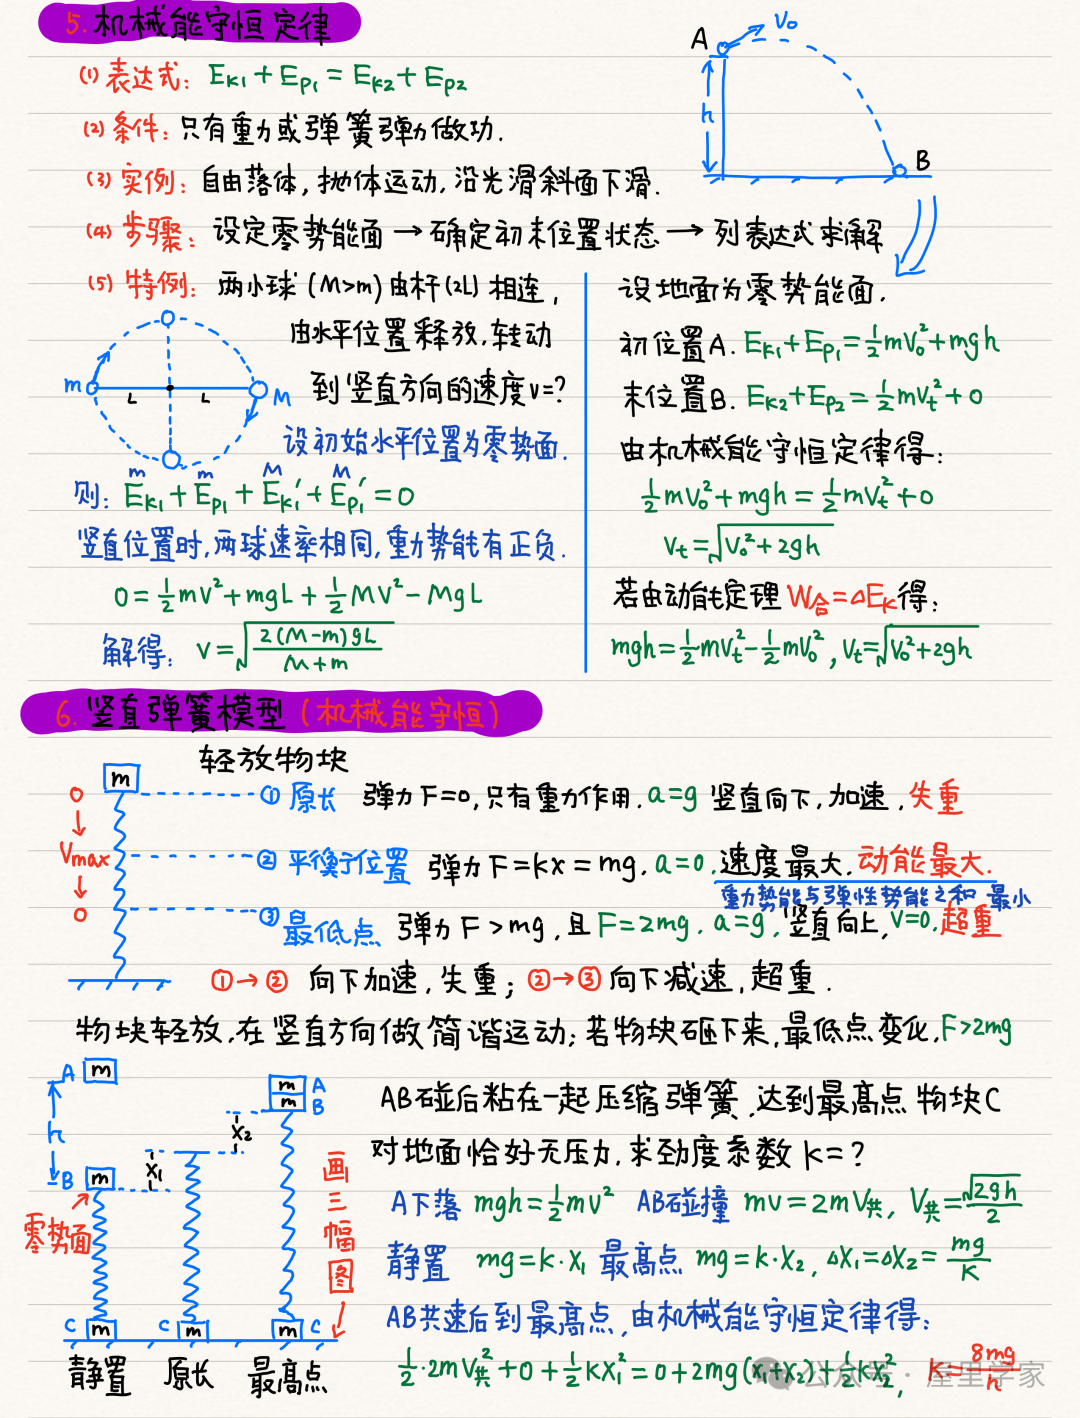 5. 机械能守恒定律
A
V₀
h
B
(1) 表达式: Eₖ₁+Eₚ₁=Eₖ₂+Eₚ₂
(2) 条件: 只有重力或弹簧弹力做功.
(3) 实例: 自由落体, 抛体运动, 沿光滑斜面下滑.
(4) 步骤: 设定零势能面→确定初末位置状态→列表达式求解
(5) 特例: 两小球 (M>m) 由杆(2L) 相连,
由水平位置释放, 转动
到竖直方向的速度v=?
m
L
L
M
设初始水平位置为零势面.
m m M M
则: Eₖ₁+Eₚ₁+Eₖ₁'+Eₚ₁'=0
竖直位置时, 两球速率相同, 重力势能有正负.
0=½mv²+mgL+½Mv²-MgL
解得: v=√(2(M-m)gL/(M+m))
设地面为零势能面.
初位置A. Eₖ₁+Eₚ₁=½mV₀²+mgh
末位置B. Eₖ₂+Eₚ₂=½mVₜ²+0
由机械能守恒定律得:
½mV₀²+mgh=½mVₜ²+0
Vₜ=√(V₀²+2gh)
若由动能定理 W合=△Eₖ得:
mgh=½mVₜ²-½mV₀², Vₜ=√(V₀²+2gh)
6. 竖直弹簧模型 (机械能守恒)
轻放物块
m
0
Vmax
0
① 原长 弹力F=0, 只有重力作用. a=g 竖直向下, 加速, 失重
② 平衡位置 弹力F=kx=mg. a=0. 速度最大. 动能最大.
重力势能与弹性势能之和 最小
③ 最低点 弹力F>mg, 且F=2mg. a=g, 竖直向上, v=0. 超重
①→② 向下加速, 失重; ②→③ 向下减速, 超重.
物块轻放, 在竖直方向做简谐运动; 若物块砸下来, 最低点变化, F>2mg
A
m
h
B
m
零势面
X₁
X₂
m
A
m
B
C
m
C
m
m
C
静置
原长
最高点
画三幅图
AB碰后粘在一起压缩弹簧, 达到最高点 物块C
对地面恰好无压力, 求劲度系数k=?
A下落 mgh=½mv² AB碰撞 mv=2mV共, V共=√(2gh)/2
静置 mg=k·X₁ 最高点 mg=k·X₂, △X₁=△X₂=mg/K
AB共速后到最高点, 由机械能守恒定律得:
½·2mV共²+0+½kX₁²=0+2mg(x₁+x₂)+½kX₂², K=8mg/h
公众号·屋里学家